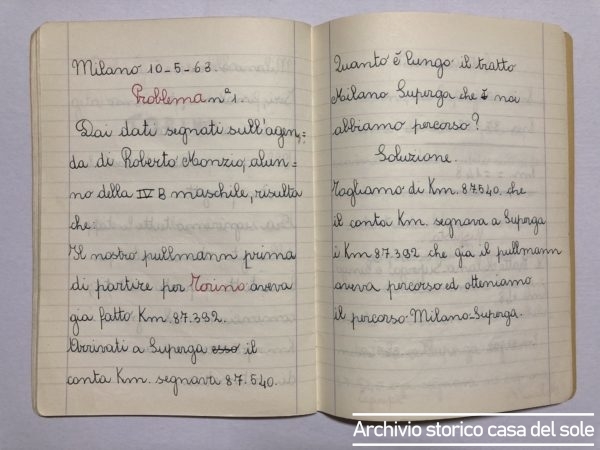 Milano 10-5-63
Problema n° 1.
Dai dati segnati sull'agen=
da di Roberto Monzio, alun=
no della IV B maschile, risulta
che:
Il nostro pullmann prima
di partire per Torino aveva
gia fatto Km. 87.392.
Arrivati a Superga esso il
conta Km. segnava 87.540.
Quanto è lungo il tratto
Milano Superga che noi
abbiamo percorso?
Soluzione.
Togliamo di Km. 87540. che
il conta Km. segnava a Superga
i Km 87.392 che gia il pullmann
aveva percorso ed otteniamo
il percorso Milano-Superga.
Archivio storico casa del sole